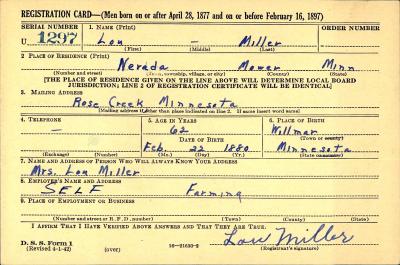 REGISTRATION CARD—(Men born on or after April 28, 1877 and on or before February 16, 1897)
SERIAL NUMBER 1. NAME (Print) ORDER NUMBER
U 1297 Lou - Miller
(First) (Middle) (Last)
2. PLACE OF RESIDENCE (Print)
Nevada Mower Minn
(Number and street) (Town, township, village, or city) (County) (State)
[THE PLACE OF RESIDENCE GIVEN ON THE LINE ABOVE WILL DETERMINE LOCAL BOARD
JURISDICTION; LINE 2 OF REGISTRATION CERTIFICATE WILL BE IDENTICAL]
3. MAILING ADDRESS
Rose Creek Minnesota
(Mailing address if other than place indicated on line 2. If same insert word same)
4. TELEPHONE 5. AGE IN YEARS 6. PLACE OF BIRTH
- 62 Willmar
DATE OF BIRTH (Town or county)
Feb. 22 1880 Minnesota
(Exchange) (Number) (Mo.) (Day) (Yr.) (State or country)
7. NAME AND ADDRESS OF PERSON WHO WILL ALWAYS KNOW YOUR ADDRESS
Mrs. Lou Miller
8. EMPLOYER'S NAME AND ADDRESS
SELF Farming
9. PLACE OF EMPLOYMENT OR BUSINESS
(Number and street or R. F. D. number) (Town) (County) (State)
I AFFIRM THAT I HAVE VERIFIED ABOVE ANSWERS AND THAT THEY ARE TRUE.
D. S. S. Form 1 Lou Miller
(Revised 4-1-42) (over) 16—21630-2 (Registrant's signature)